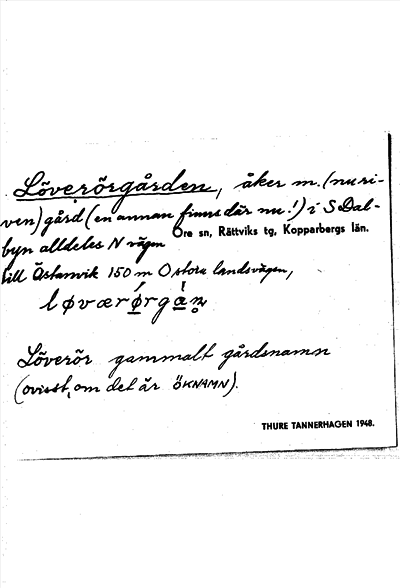 Löverörgården, åker m. (nu ri-
ven) gård (en annan finns där nu!) i S Dal-
byn alldeles N vägen
Ore sn, Rättviks tg, Kopparbergs län.
till Östanvik 150 m O stora landsvägen,
Löverör gammalt gårdsnamn
(ovisst, om det är ÖKNAMN).
THURE TANNERHAGEN 1948.